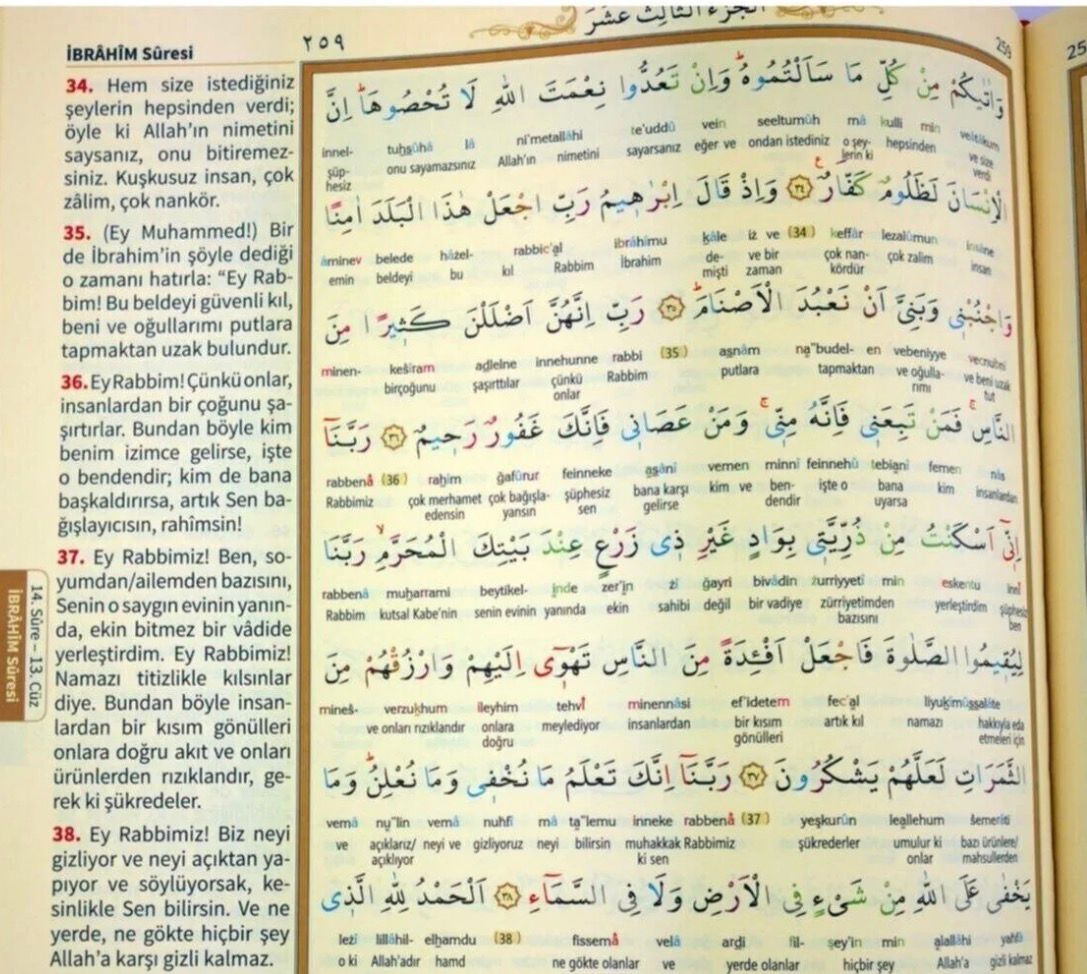 الجزء الثالث عشر
İBRÂHÎM Sûresi
٢٥٩
259
25
34. Hem size istediğiniz
şeylerin hepsinden verdi;
öyle ki Allah'ın nimetini
saysanız, onu bitiremez-
siniz. Kuşkusuz insan, çok
zâlim, çok nankör.
35. (Ey Muhammed!) Bir
de İbrahim'in şöyle dediği
o zamanı hatırla: “Ey Rab-
bim! Bu beldeyi güvenli kıl,
beni ve oğullarımı putlara
tapmaktan uzak bulundur.
36. Ey Rabbim! Çünkü onlar,
insanlardan bir çoğunu şa-
şırtırlar. Bundan böyle kim
benim izimce gelirse, işte
o bendendir; kim de bana
başkaldırırsa, artık Sen ba-
ğışlayıcısın, rahîmsin!
37. Ey Rabbimiz! Ben, so-
yumdan/ailemden bazısını,
Senin o saygın evinin yanın-
da, ekin bitmez bir vâdide
yerleştirdim. Ey Rabbimiz!
Namazı titizlikle kılsınlar
diye. Bundan böyle insan-
lardan bir kısım gönülleri
onlara doğru akıt ve onları
ürünlerden rızıklandır, ge-
rek ki şükredeler.
38. Ey Rabbimiz! Biz neyi
gizliyor ve neyi açıktan ya-
pıyor ve söylüyorsak, ke-
sinlikle Sen bilirsin. Ve ne
yerde, ne gökte hiçbir şey
Allah'a karşı gizli kalmaz.
14. Sûre – 13. Cüz
İBRÂHÎM Sûresi
وَاٰتٰيكُمْ مِنْ كُلِّ مَا سَاَلْتُمُوهُۜ وَاِنْ تَعُدُّوا نِعْمَتَ اللّٰهِ لَا تُحْصُوهَاۜ اِنَّ
innel- tuḥsûhâ lâ ni'metallâhi te'uddû vein seeltumûh mâ kulli min veâtâkum
şüp- onu sayamazsınız Allah'ın nimetini sayarsanız eğer ve ondan istediniz o şey- hepsinden ve size
hesiz lerin ki verdi
الْاِنْسَانَ لَظَلُومٌ كَفَّارٌ۟ ﴿٣٤﴾ وَاِذْ قَالَ اِبْرٰه۪يمُ رَبِّ اجْعَلْ هٰذَا الْبَلَدَ اٰمِنًا
âminev belede hâzel- rabbic'al ibrâhîmu ḳâle iz ve (34) keffâr lezalûmun insâne
emin beldeyi bu kıl Rabbim İbrahim de- ve bir çok nan- çok zalim insan
mişti zaman kördür
وَاجْنُبْن۪ي وَبَنِيَّ اَنْ نَعْبُدَ الْاَصْنَامَۜ ﴿٣٥﴾ رَبِّ اِنَّهُنَّ اَضْلَلْنَ كَث۪يرًا مِنَ
minen- keŝîram aḍlelne innehunne rabbi (35) aṣnâm na''budel- en vebeniyye vecnubnî
birçoğunu şaşırttılar çünkü Rabbim putlara tapmaktan ve oğulla- ve beni uzak
onlar rımı tut
النَّاسِۚ فَمَنْ تَبِعَن۪ي فَاِنَّهُ مِنّ۪يۚ وَمَنْ عَصَان۪ي فَاِنَّكَ غَفُورٌ رَح۪يمٌ ﴿٣٦﴾ رَبَّنَٓا
rabbenâ (36) raḥîm ġafûrur feinneke aṣânî vemen minnî feinnehû tebianî femen nâs
Rabbimiz çok merhamet çok bağışla- şüphesiz bana karşı kim ve ben- işte o bana kim insanlardan
edensin yansın sen gelirse dendir uyarsa
اِنّ۪ٓي اَسْكَنْتُ مِنْ ذُرِّيَّت۪ي بِوَادٍ غَيْرِ ذ۪ي زَرْعٍ عِنْدَ بَيْتِكَ الْمُحَرَّمِۙ رَبَّنَا
rabbenâ muḥarrami beytikel- ınde zer'in zî ġayri bivâdin żurriyyetî min eskentu innî
Rabbim kutsal Kabe'nin senin evinin yanında ekin sahibi değil bir vadiye zürriyetimden yerleştirdim şüphesiz
bazısını ben
لِيُق۪يمُوا الصَّلٰوةَ فَاجْعَلْ اَفْـِٔدَةً مِنَ النَّاسِ تَهْو۪ٓي اِلَيْهِمْ وَارْزُقْهُمْ مِنَ
mineŝ- verzuḳhum ileyhim tehvî minennâsi ef'idetem fec'al liyuḳîmûṣṣalâte
ve onları rızıklandır onlara meylediyor insanlardan bir kısım artık kıl namazı hakkıyla eda
doğru gönülleri etmeleri için
الثَّمَرَاتِ لَعَلَّهُمْ يَشْكُرُونَ ﴿٣٧﴾ رَبَّنَٓا اِنَّكَ تَعْلَمُ مَا نُخْف۪ي وَمَا نُعْلِنُۜ وَمَا
vemâ nu''lin vemâ nuhfî mâ ta''lemu inneke rabbenâ (37) yeşkurûn leallehum ŝemerâti
ve açıklarız/ neyi ve gizliyoruz neyi bilirsin muhakkak Rabbimiz şükrederler umulur ki bazı ürünlere/
açıklıyor ki sen onlar mahsullerden
يَخْفٰى عَلَى اللّٰهِ مِنْ شَيْءٍ فِي الْاَرْضِ وَلَا فِي السَّمَٓاءِ ﴿٣٨﴾ اَلْحَمْدُ لِلّٰهِ الَّذ۪ي
leżî lillâhil- elḥamdu (38) fissemâ velâ arḍi fil- şey'in min alallâhi yahfâ
o ki Allah'adır hamd ne gökte olanlar ve yerde olanlar hiçbir şey Allah'a gizli kalmaz